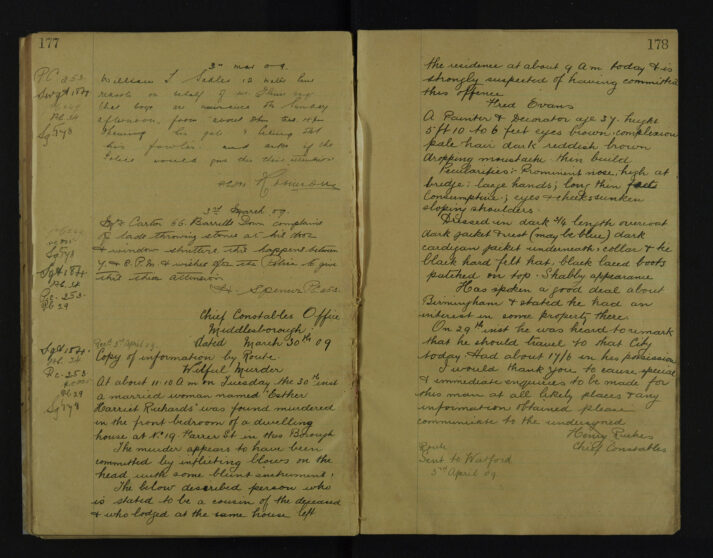 177
3rd Mar 09.
William T
resols on behalf of Mr
that boys are nuisance on Sunday
afternoon from about
his gate &
his fowls. and asks if the
Police would give this their attention
3rd March 09.
Carton 66. complains
lads throwing stones at his door
& window shutters this happens between
7. & 8. P.M. & wishes for the Police to give
this their attention
Spencer Pc 253
Chief Constables Office
Middlesborough
Dated March 30th 09
Recd 3rd April 09.
Copy of information by Route
Wilful Murder
At about 11.10 a m on Tuesday the 30th inst
a married woman named "Esther
Harriet Richards" was found murdered
in the front bedroom of a dwelling
house at No 19. St in this Borough
The murder appears to have been
committed by inflicting blows on the
head with some blunt instrument.
The below described person who
is stated to be a cousin of the deceased
& who lodged at the same house left
P.C. 253
Pb. 24
Sgt 78
Sgt 78
Pb. 24
Pc. 253
Pb 29
Pb. 24
Pc. 253
Pb 29
Sgt 78
178
the residence at about 9 a m today & is
strongly suspected of having committed
this offence.
Fred Evans
A Painter & Decorator age 37. height
5ft 10 to 6 feet eyes brown complexion
pale hair dark reddish brown
dropping moustache thin build
Peculiarities:- Prominent nose, high at
bridge: large hands; long thin
consumptive; eyes & cheeks sunken
sloping shoulders.
Dressed in dark 3/4 length overcoat
dark jacket & vest (may be blue) dark
cardigan jacket underneath: collar & tie
black hard felt hat. black laced boots
patched on top. Shabby appearance
Has spoken a good deal about
Birmingham & stated he had an
interest in some property there.
On 29th inst he was heard to remark
that he should travel to that City
today. Had about 17/6 in his possession
I would thank you to cause special
& immediate enquiries to be made for
this man at all likely places & any
information obtained please
communicate to the undersigned
Henry Riches
Chief Constables
Route
Sent to Watford
3rd April 09.